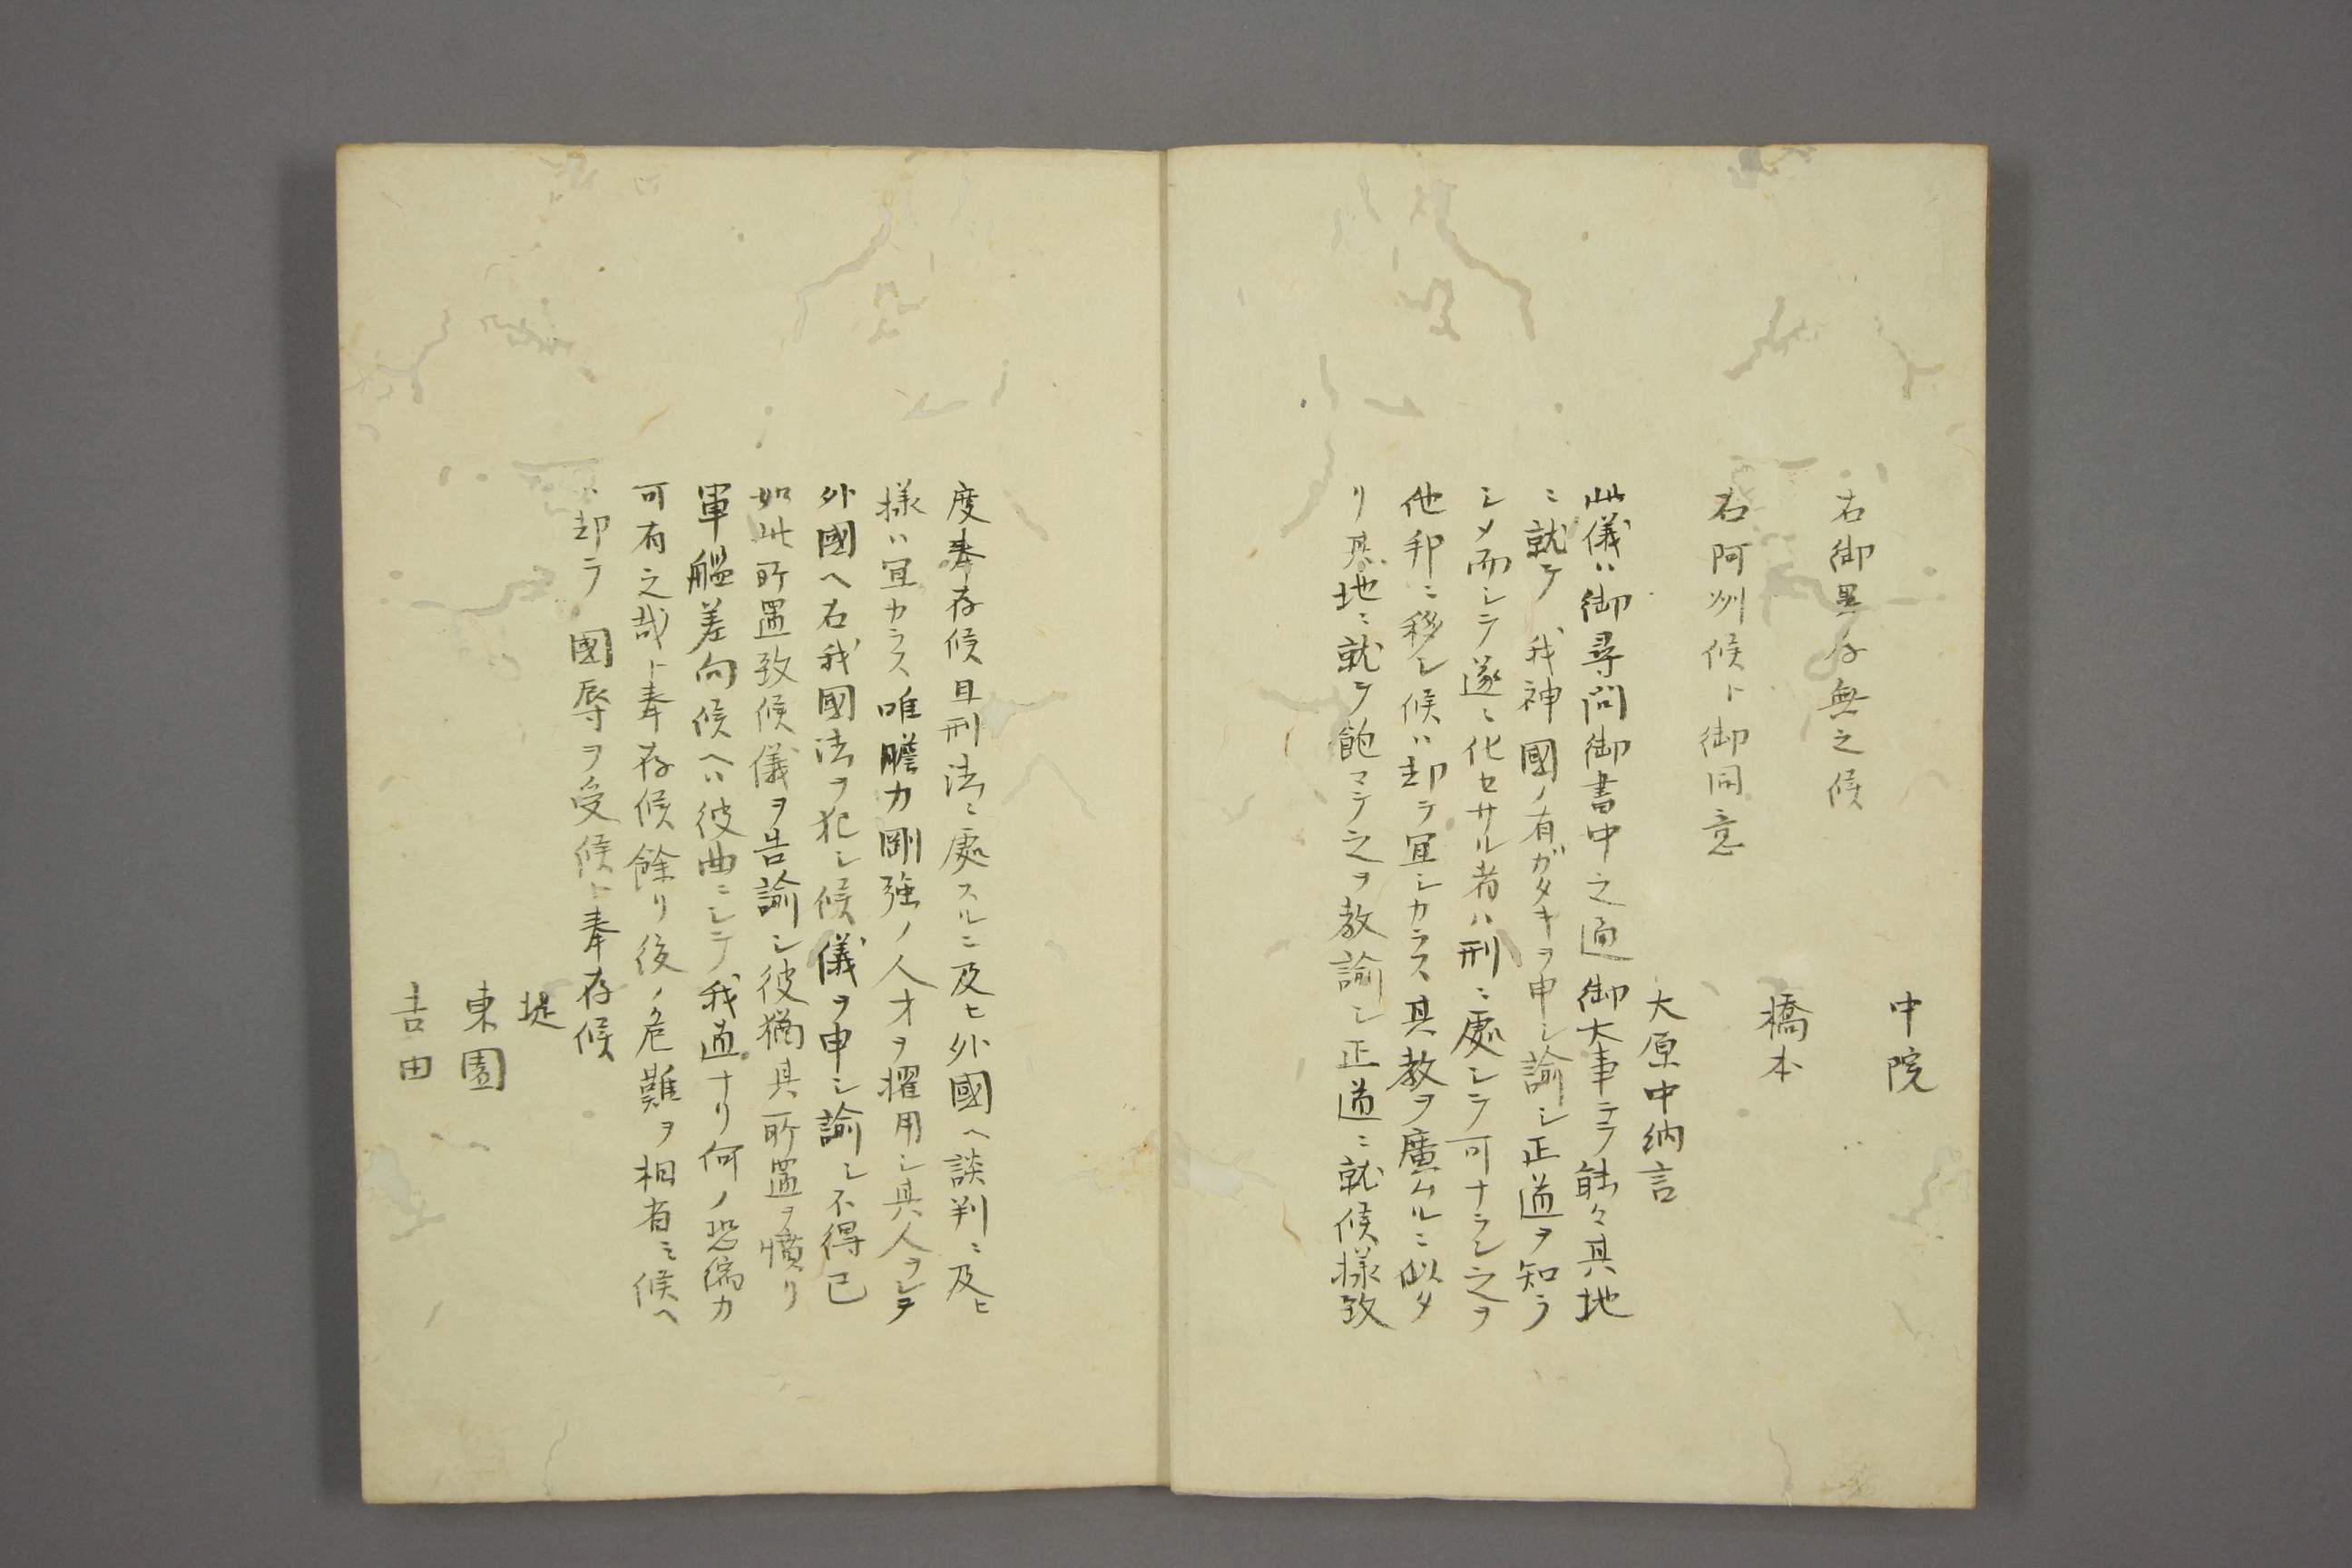 中院
右御異存無之候
橋本
右阿州候ト御同意
大原中納言
此儀ハ御尋問御書中之通御大事ニテ能々其地
ニ就テ我神國ノ有ガタキヲ申シ諭シ正道ヲ知ラ
シメ而シテ遂ニ化セサル者ハ刑ニ處シテ可ナラン之ヲ
他邦ニ移シ候ハ却テ宜シカラス其教ヲ廣ムルニ似タ
リ其地ニ就テ飽マテ之ヲ教諭シ正道ニ就候様致
度奉存候且刑法ニ處スルニ及ヒ外國ヘ談判ニ及ヒ
様ハ宜カラス唯膽力剛強ノ人才ヲ擢用シ其人ヲシテ
外國ヘ右我國法ヲ犯シ候儀ヲ申シ諭シ不得已
如此所置致候儀ヲ告諭シ彼猶其所置ヲ憤リ
軍艦差向候ヘハ彼曲ニシテ我直ナリ何ノ恐懼カ
可有之哉ト奉存候餘リ後ノ危難ヲ相省ミ候ヘ
ハ却テ國辱ヲ受候ト奉存候
堤
東園
吉田